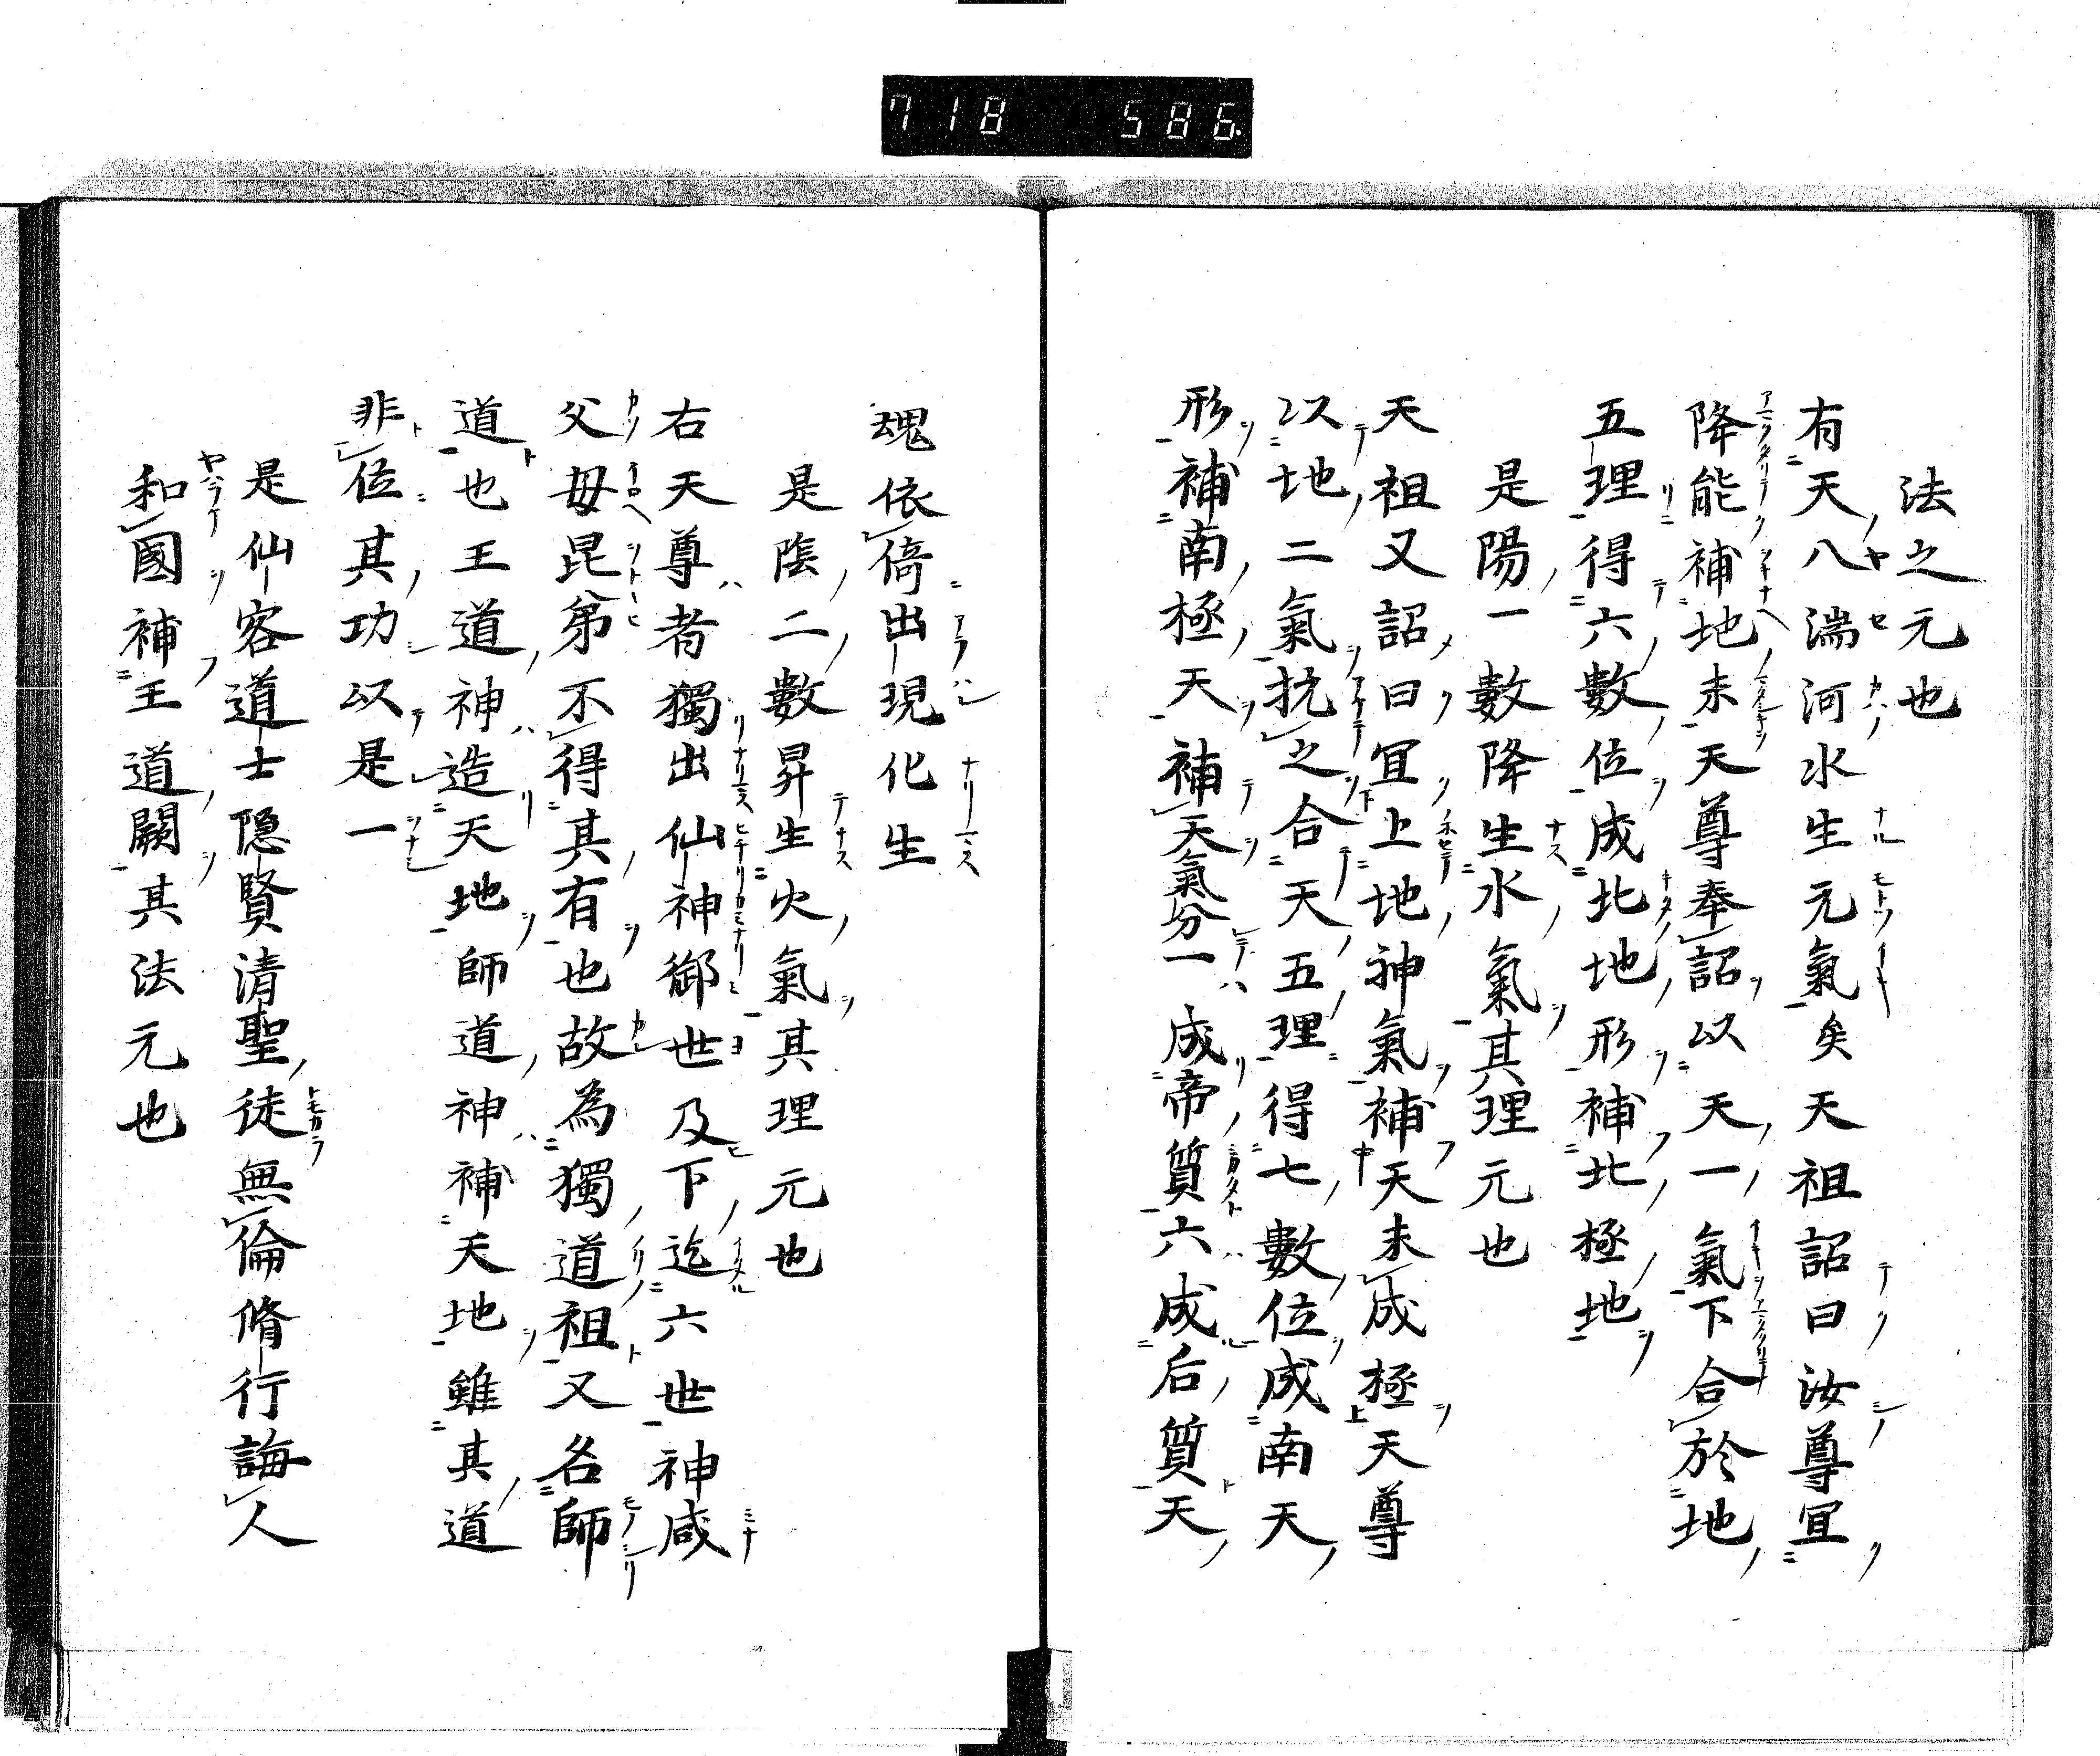 718 586
法之元也
有天八湍河水生元氣矣天祖詔曰汝尊宜
降能補地未天尊奉詔以天一氣下合於地
五理得六數位成北地形補北極地
是陽一數降生水氣其理元也
天祖又詔曰宜上地神氣補天未成極天尊
以地二氣抗之合天五理得七數位成南天
形補南極天補天氣分一成帝質六成后質天
魂依倚出現化生
是陰二數昇生火氣其理元也
右天尊者獨出仙神御世及下迄六世神咸
父母昆弟不得其有也故為獨道祖又名師
道也王道神造天地師道神補天地雖其道
非位其功以是一
是仙客道士隱賢清聖徒無倫脩行誨人
和國補王道闕其法元也